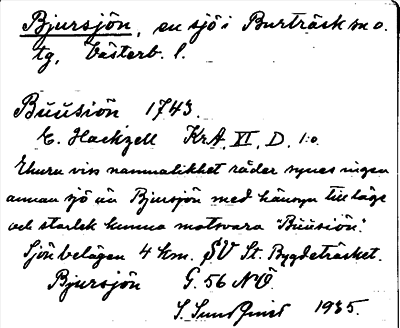 Bjursjön, en sjö i Burträsk sn o.
tg, Västerb. l.
Buusiön 1743.
C. Hackzell KrA. VI, D, 1:o.
Ehuru viss namnlikhet råder synes ingen
annan sjö än Bjursjön med hänsyn till läge
och storlek kunna motsvara "Buusiön".
Sjön belägen 4 km. SV St. Bygdeträsket.
Bjursjön G. 56 NO.
S. Sundqvist 1935.